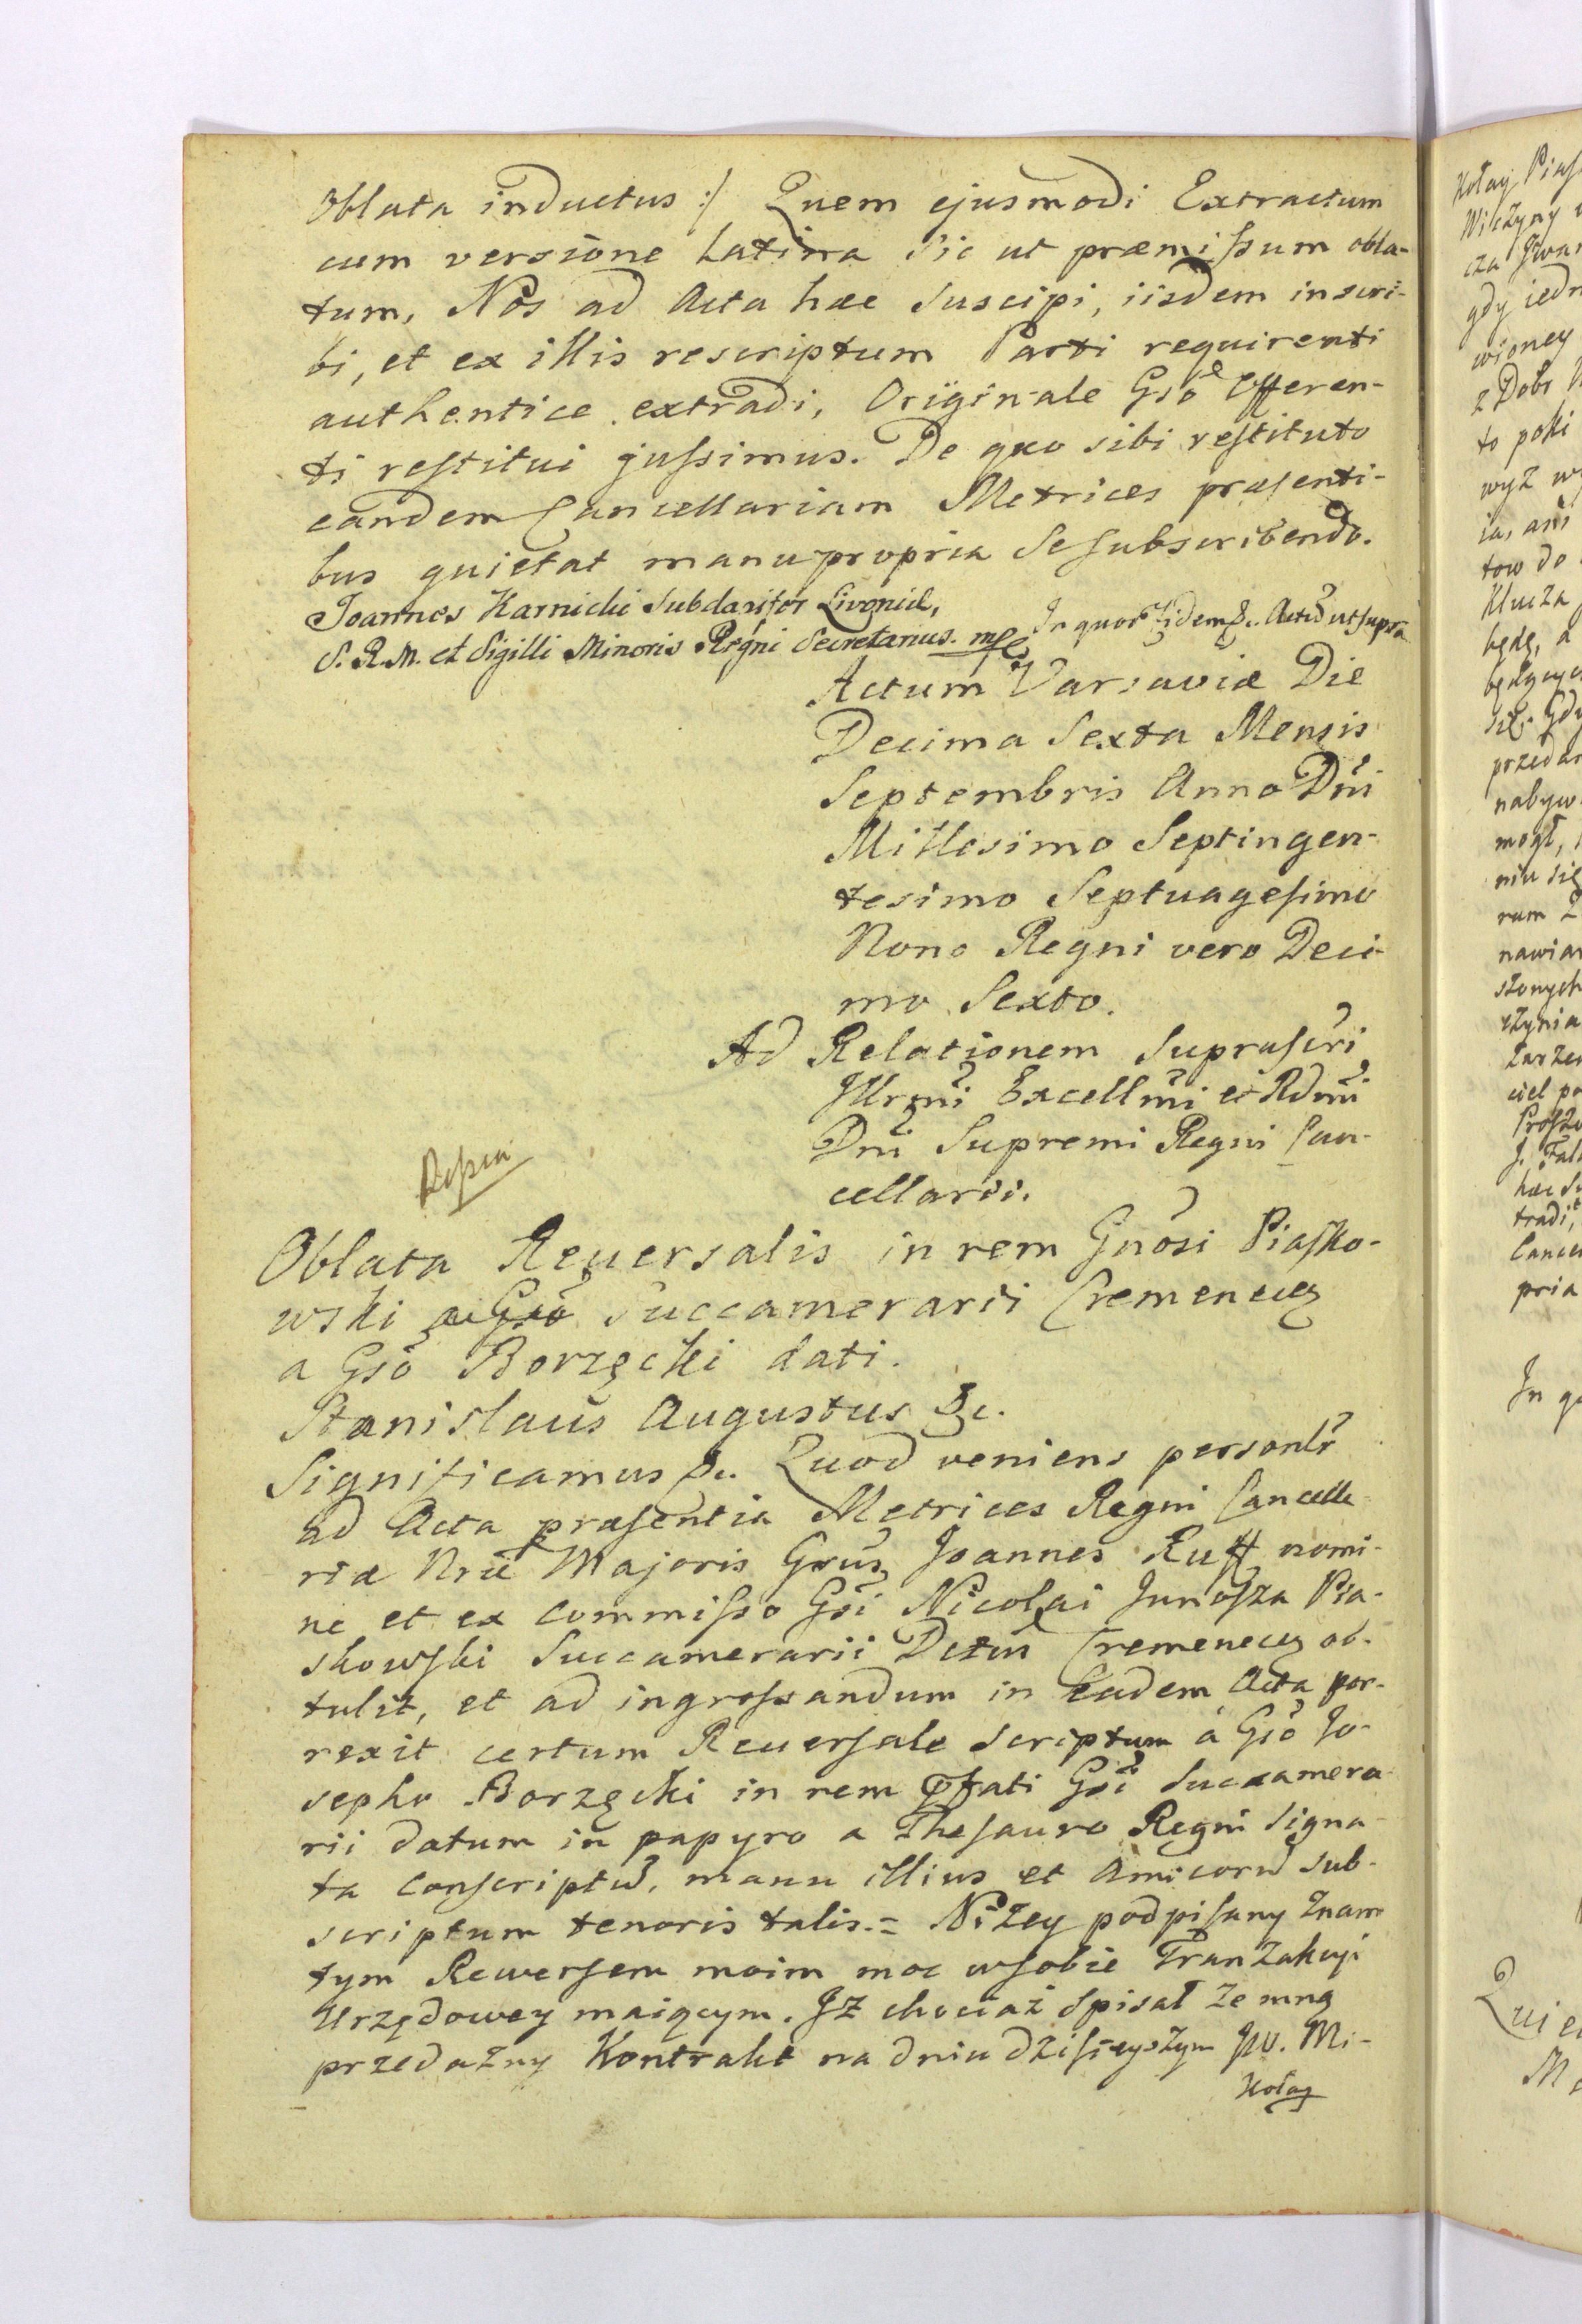 Oblata inductus :/ Quem ejusmodi Extractum
cum versione Latina sic ut præmissum obla-
tum, Nos ad Acta hæc suscipi, iisdem inscri-
bi, et ex illis rescriptum Parti requirenti
authentice extradi, Originale Gsõ Offeren-
ti restitui jussimus. De quo sibi restituto
eandem Cancellariam Metrices præsenti-
bus quietat manu propria se subscribendo.
Joannes Karnicki Subdapifer Livoniæ,
S. R. M. et Sigilli Minoris Regni Secretarius. mp
In quor Fidem &c. Actũ ut supra
Actum Varsaviæ Die
Decima Sexta Mensis
Septembris Anno Dñi
Millesimo Septingen-
tesimo Septuagesimo
Nono Regni vero Deci-
mo Sexto.
Ad Relationem Suprascri
Illrmi Excellmi et Rdmi
Dñi Supremi Regni Can-
cellarii.
Oblata Reuersalis in rem Gnosi Piasko-
wski Succamerarii Cremenecen
a Gsõ Borzęcki dati.
Stanislaus Augustus &c.
Significamus &c. Quod veniens personlr
ad Acta præsentia Metrices Regni Cancella-
riæ Nræ Majoris Gsus Joannes Ruff nomi-
ne et ex commisso Gsi Nicolai Junosza Pia-
skowski Succamerarii Dctus Cremenecen ob-
tulit, et ad ingrossandum in Eadem Acta por-
rexit certum Reuersale scriptum à Gsõ Jo-
sepho Borzęcki in rem pfati Gsi Succamera-
rii datum in papyro a Thesauro Regni signa-
ta conscriptũ, manu illius et Amicorũ sub-
scriptum tenoris talis.= Niżey podpisany znam
tym Rewersem moim moc w sobie Tranzakcyi
Urzędowey maiącym. Iż chociaż spisał ze mną
przedażny Kontrakt na dniu dzisieyszym JW. Mi-
kołay